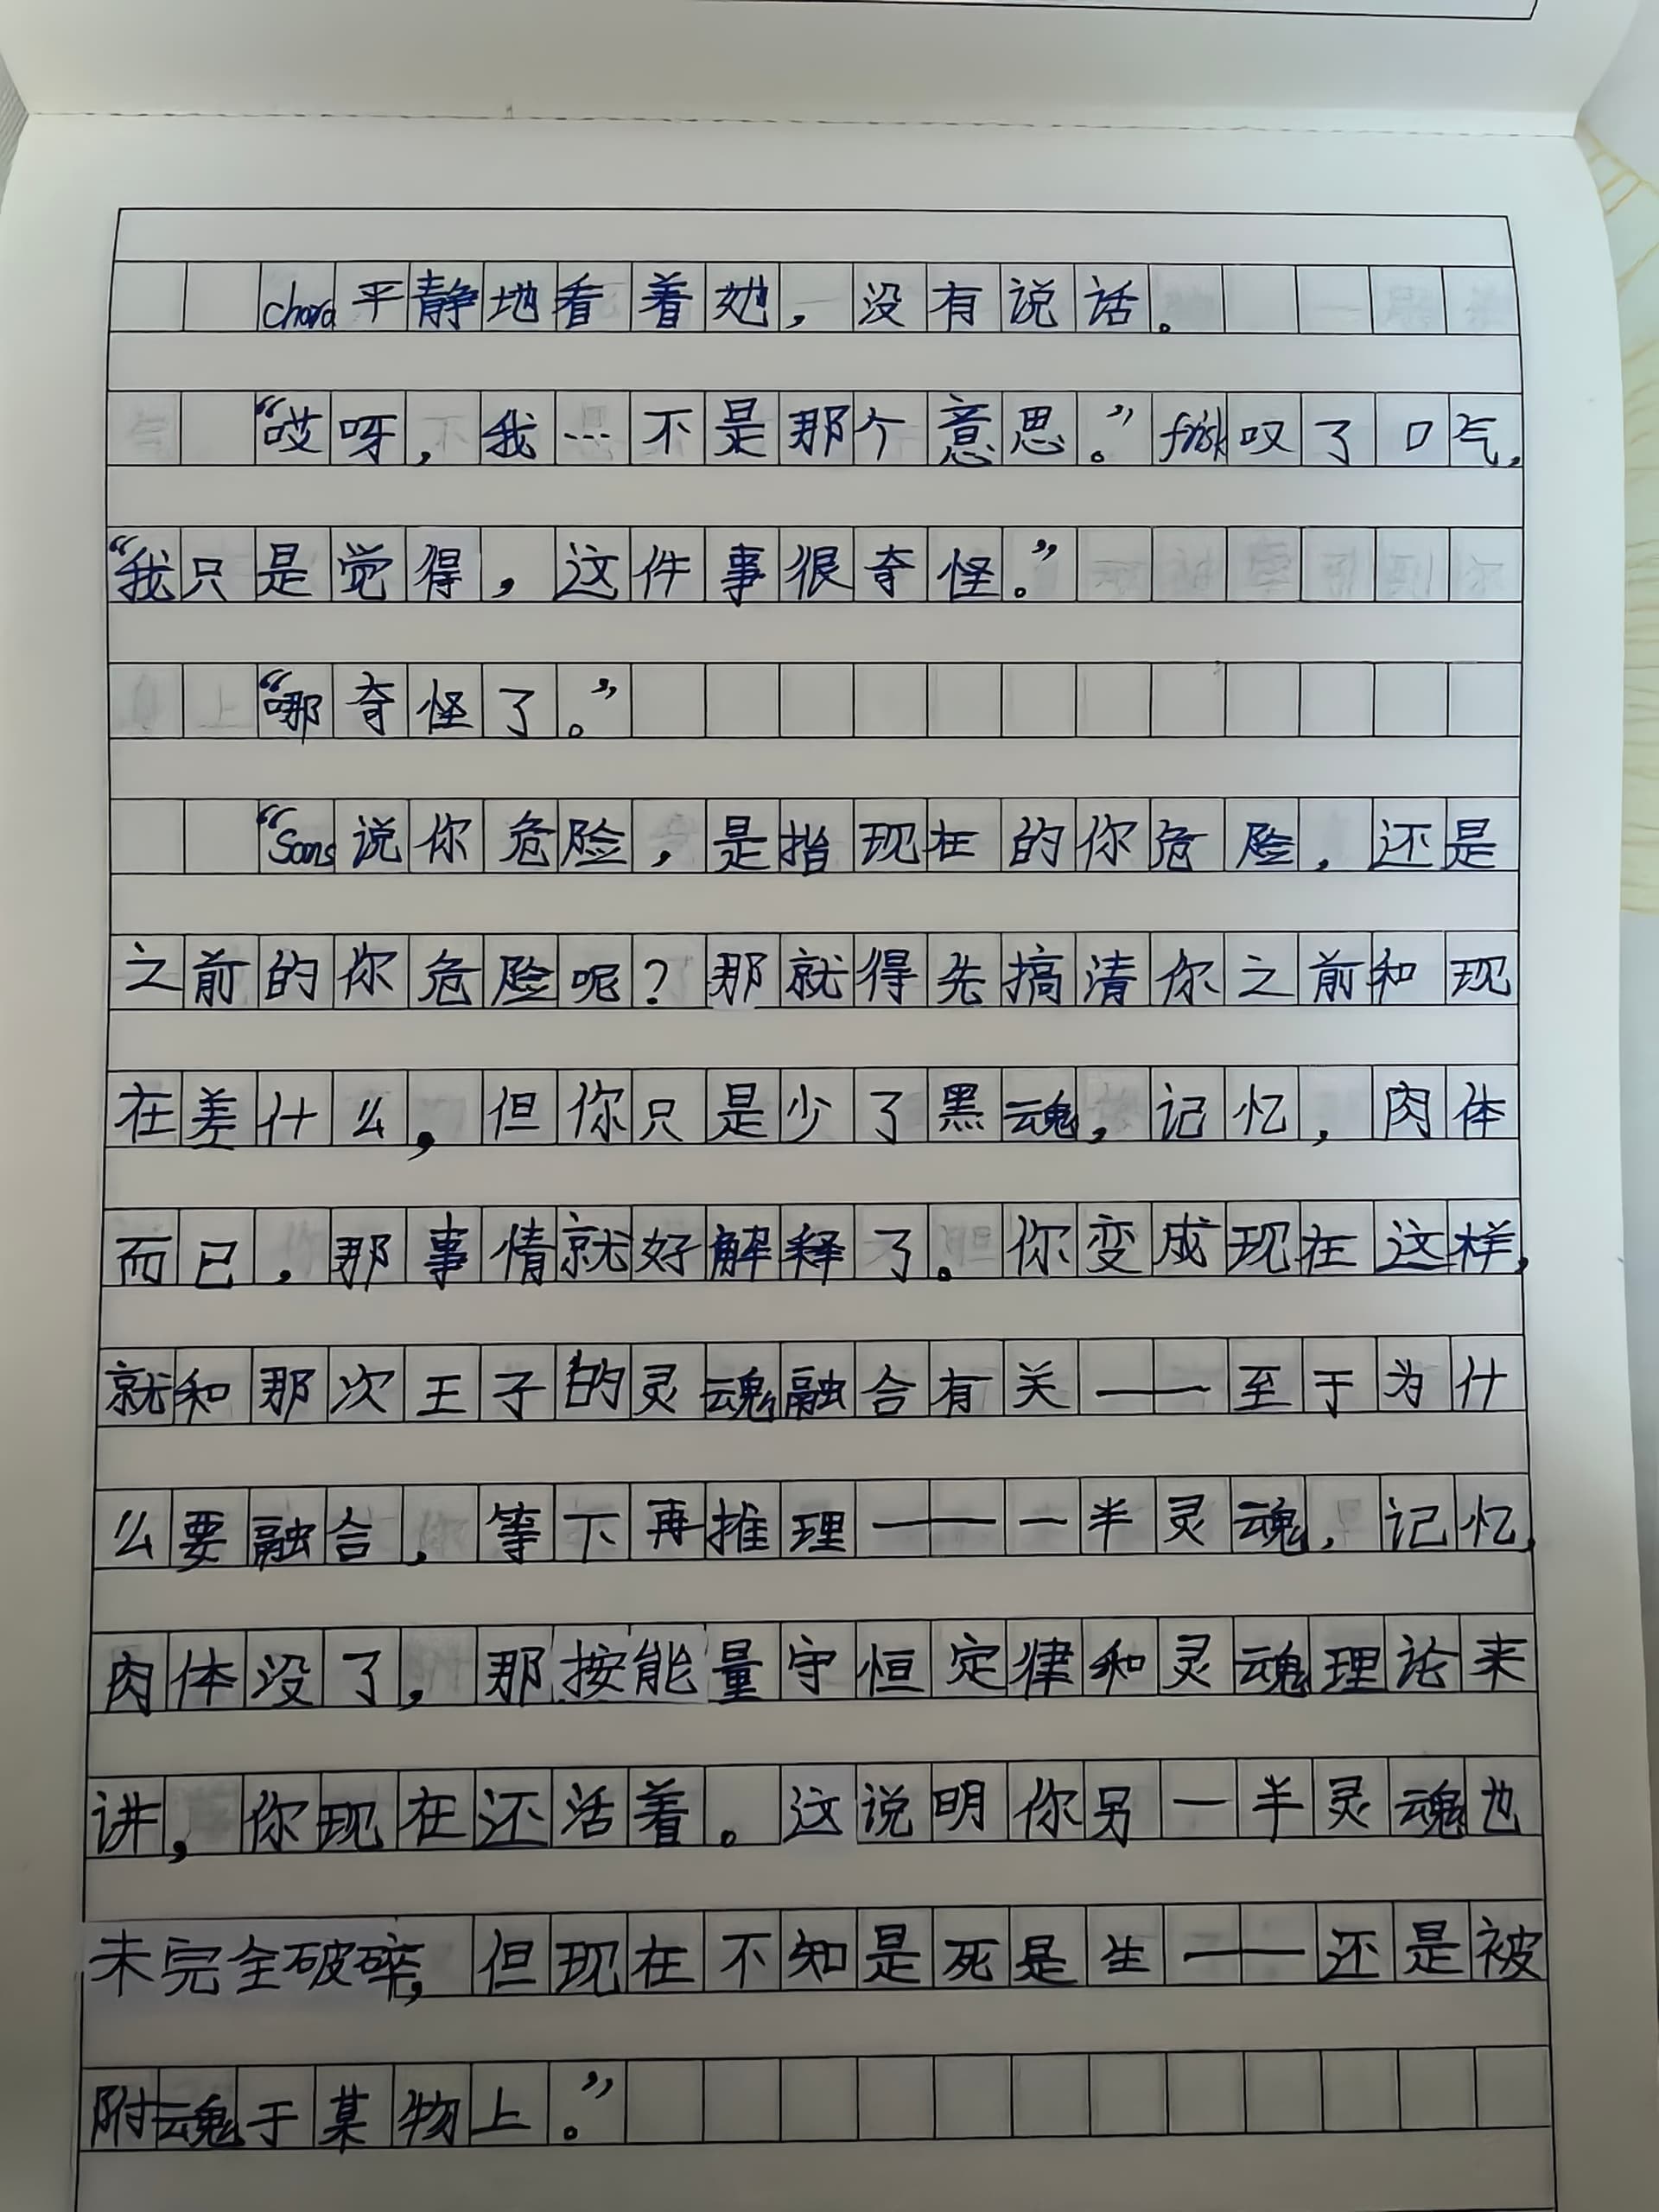 chara平静地看着她，没有说话。
“哎呀，我…不是那个意思。”frisk叹了口气，
“我只是觉得，这件事很奇怪。”
“哪奇怪了。”
“Sans说你危险，是指现在的你危险，还是
之前的你危险呢？那就得先搞清你之前和现
在差什么，但你只是少了黑魂，记忆，肉体
而已，那事情就好解释了。你变成现在这样，
就和那次王子的灵魂融合有关——至于为什
么要融合，等下再推理——一半灵魂，记忆，
肉体没了，那按能量守恒定律和灵魂理论来
讲，你现在还活着。这说明你另一半灵魂也
未完全破碎，但现在不知是死是生——还是被
附魂于某物上。”